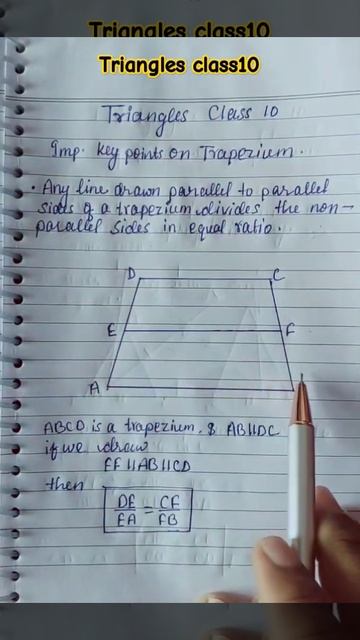 Triangles class10
Triangles class10
Triangles Class 10
Imp. key points on Trapezium.
• Any line drawn parallel to parallel
sides of a trapezium divides the non-
parallel sides in equal ratio.
D C
E F
A
ABCD is a trapezium. & AB||DC
if we draw
EF||AB||CD
then
DE/EA = CF/FB